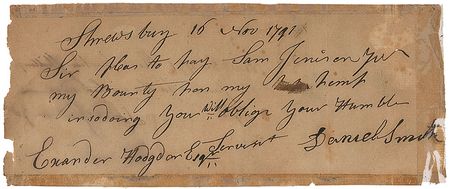 Shrewsbury 16 Nov 1791
Sir plas to pay Sam Jenison Jur
my Bounty hon my hemp
in sodoing You will oblige Your Humble
Servent Daniel Smith
Exander Hodgdon Esqr